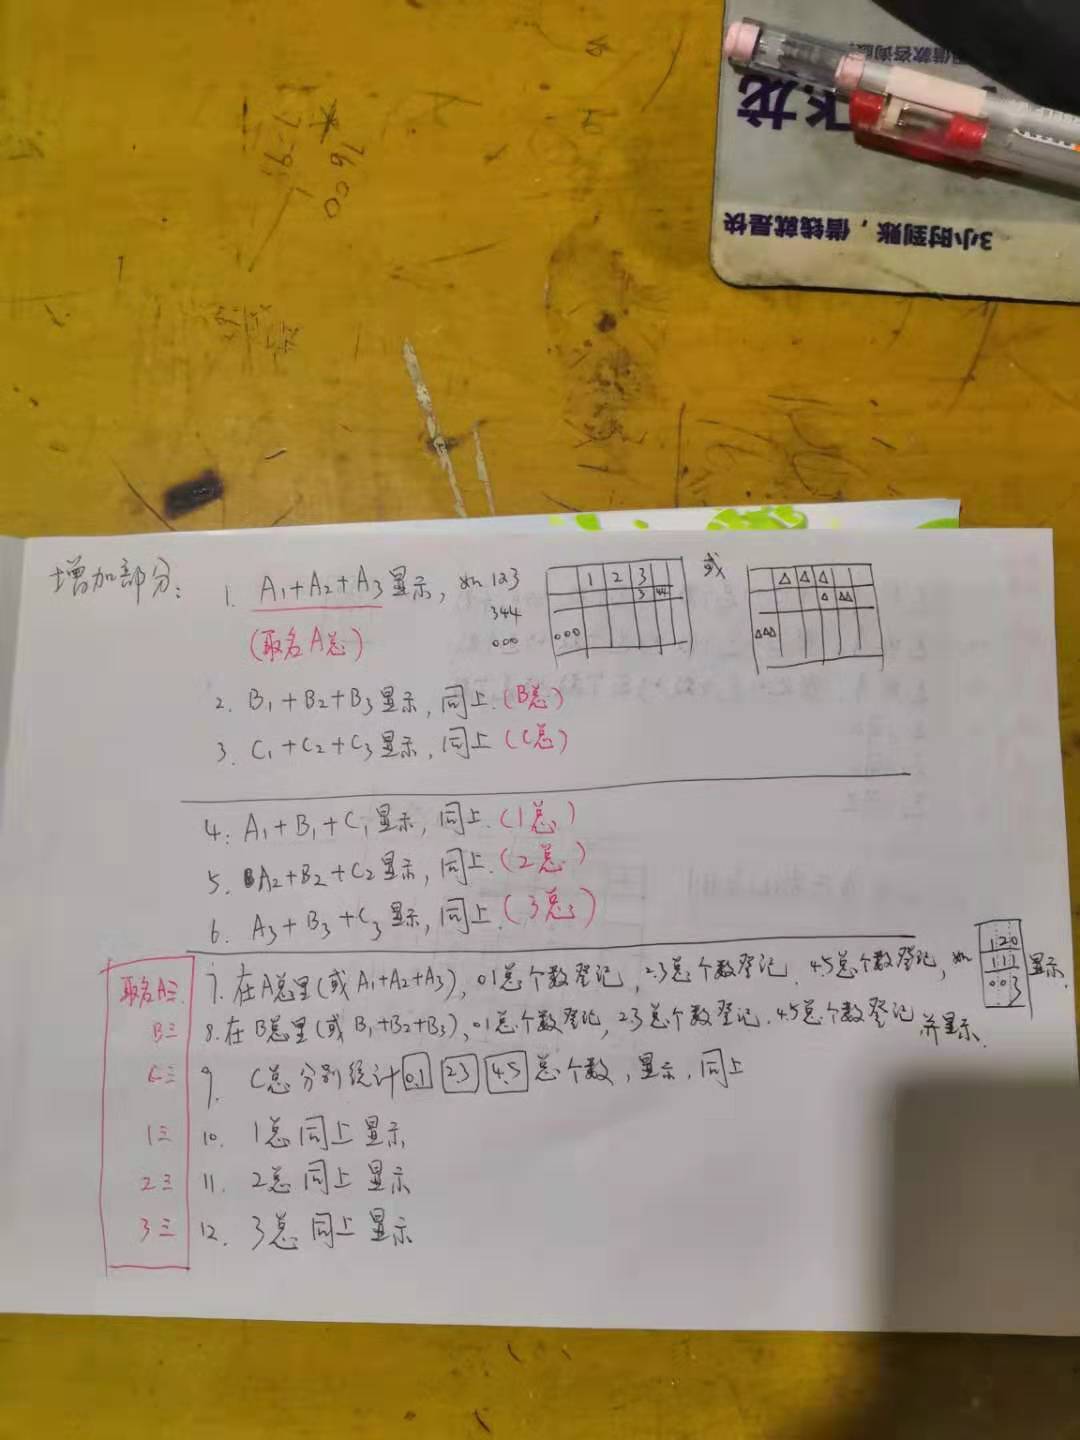 飞龙
3小时到账，借钱就是快
7600
增加部分：
1. A₁+A₂+A₃显示，如123
344
000
1 2 3
3 44
000
或
△ △ △
△ △△
△△△
(取名A总)
2. B₁+B₂+B₃显示，同上.(B总)
3. C₁+C₂+C₃显示，同上(C总)
4. A₁+B₁+C₁显示，同上.(1总)
5. A₂+B₂+C₂显示，同上.(2总)
6. A₃+B₃+C₃显示，同上.(3总)
取名A三 7. 在A总里(或A₁+A₂+A₃)，01总个数登记，23总个数登记，45总个数登记，如
120
111
003
显示.
B三 8. 在B总里(或B₁+B₂+B₃)，01总个数登记，23总个数登记，45总个数登记 并显示.
C三 9. C总分别统计 0.1 2.3 4.5 总个数，显示，同上
1三 10. 1总同上显示
2三 11. 2总同上显示
3三 12. 3总同上显示